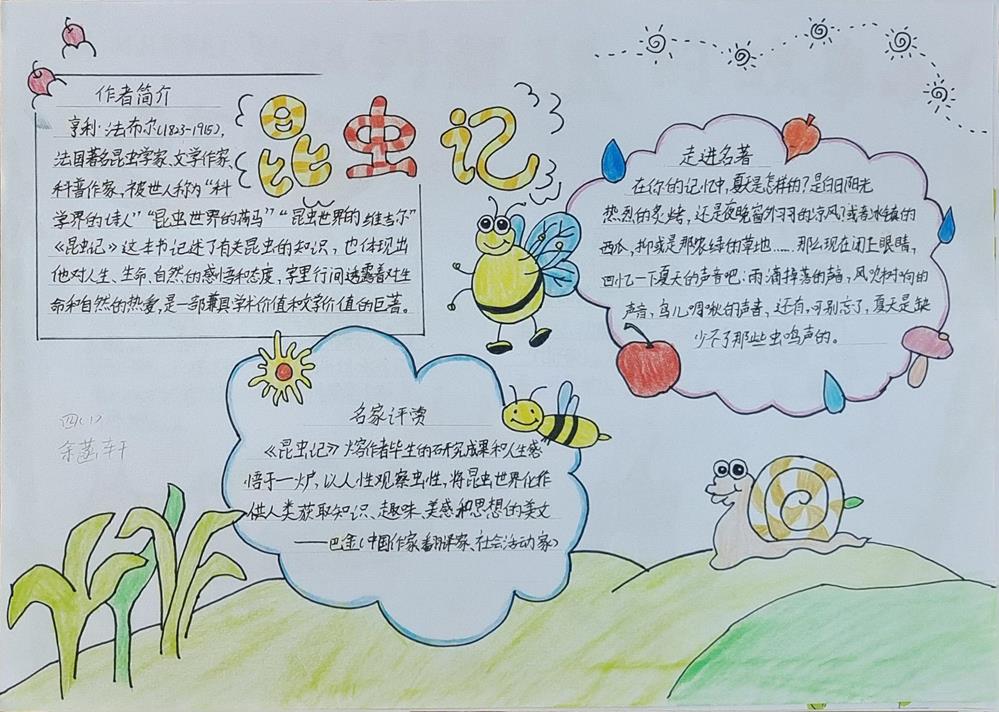 昆虫记
作者简介
亨利·法布尔(1823-1915),
法国著名昆虫学家、文学作家、
科普作家,被世人称为“科
学界的诗人”“昆虫世界的荷马”“昆虫世界的维吉尔”
《昆虫记》这本书记述了有关昆虫的知识,也体现出
他对人生、生命、自然的感悟和态度,字里行间透露着对生
命和自然的热爱,是一部兼具学术价值和文学价值的巨著。
走进名著
在你的记忆中,夏天是怎样的?是白日阳光
热烈的炙烤,还是夜晚窗外习习的凉风?或者冰镇的
西瓜,抑或是那浓绿的草地……那么现在闭上眼睛,
回忆一下夏天的声音吧:雨滴掉落的声音,风吹树响的
声音,鸟儿啁啾的声音,还有,可别忘了,夏天是缺
少不了那些虫鸣声的。
名家评读
《昆虫记》熔作者毕生的研究成果和人生感
悟于一炉,以人性观察虫性,将昆虫世界化作
供人类获取知识、趣味、美感和思想的美文
——巴金(中国作家、翻译家、社会活动家)
四(1)
余菡轩